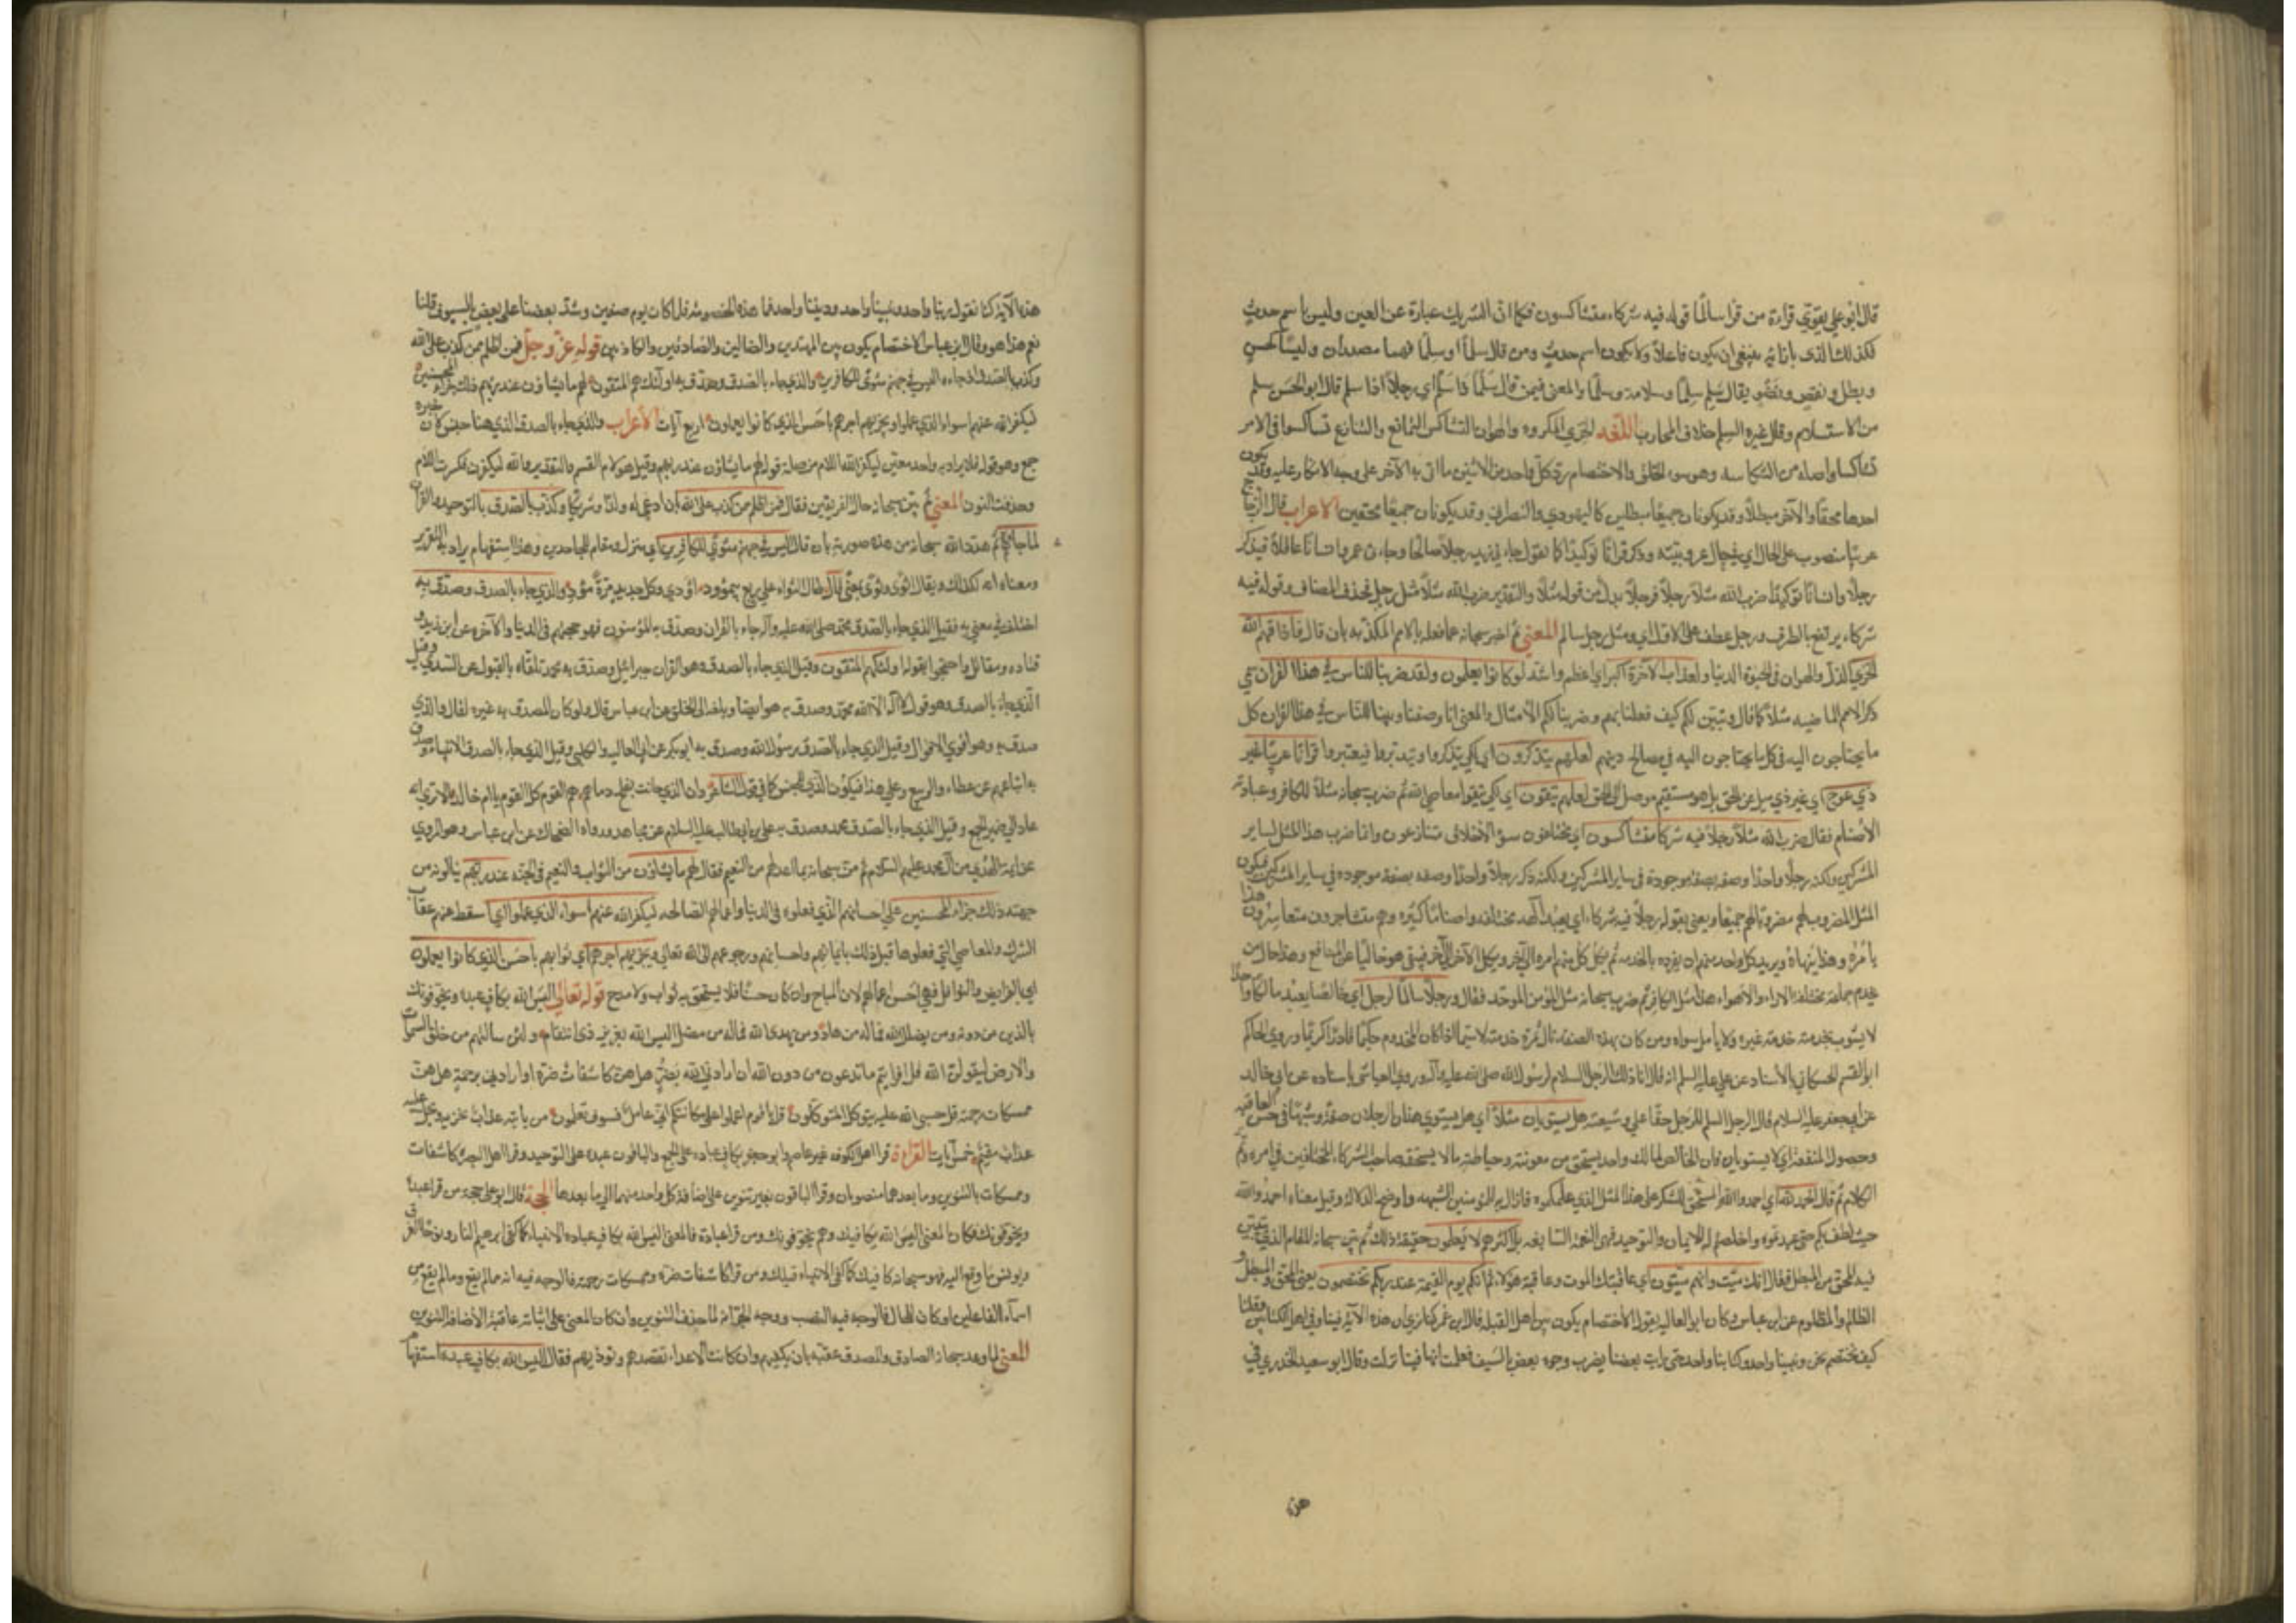 قال ابو علي يقوّي قراءة من قرا سالمًا قوله فيه شركاء متشاكسون فكما انّ الشريك عبارة عن العين وليس باسم حدث
فكذلك الذي بازائه ينبغي ان يكون فاعلاً ولا يكون اسم حدث ومن قال سلماً او سِلماً فهما مصدران وليسا كحسن
وبطل ونقض ونضو يقال سَلِم سِلماً وسلامة وسلماً والمعنى فيمن قال سَلَماً ذا سَلَم اي رجلاً ذا سلم قال ابو الحسن سلم
من الاستسلام وقال غيره السلم خلاف المحارب اللّغه الخزي المكروه والهوان التشاكس التمانع والتنازع تشاكسوا في الامر
تشاكسا واصله من الشكاسه وهو سوء الخلق والاختصام ردّ كلّ واحد من الاثنين ما اتى به الآخر على وجه الانكار عليه وقد يكون
احدهما محقاً والآخر مبطلاً وقد يكونان جميعًا مبطلين كاليهودي والنصراني وقد يكونان جميعًا محقين الاعراب قال الزجاج
عربيًا منصوب على الحال اي في حال عروبيّته وذكر قرآنًا توكيدًا كما تقول جاءني زيد رجلاً صالحًا وجاءني عمرو انسانًا عاقلاً فيذكر
رجلاً وانسانًا توكيدًا ضرب الله مثلاً رجلاً فرجلاً بدل من قوله مثلاً والتقدير ضرب الله مثلاً مثل رجل فحذف المضاف وقوله فيه
شركاء يرتفع بالظرف ورجل عطف على الاول اي ومثل رجل سالم المعني ثم اخبر سبحانه عما فعله بالامم المكذّبه بان قال فاذاقهم الله
الخزي اي الذلّ والهوان في الحيوة الدنيا ولعذاب الآخرة اكبر اي اعظم واشد لو كانوا يعلمون ولقد ضربنا للناس في هذا القرآن
ذكر الامم الماضيه مثلاً كما قال وتبيّن لكم كيف فعلنا بهم وضربنا لكم الأمثال والمعنى انا وصفنا وبيّنا للنّاس في هذا القرآن كل
ما يحتاجون اليه في مصالح دينهم لعلهم يتذكرون اي لكي يتذكروا ويتدبّروا فيعتبروا قرآنًا عربيًا غير
ذي عوج اي غير ذي ميل عن الحق بل هو مستقيم موصل الى الحق لعلهم يتقون اي لكي يتّقوا معاصي الله ثم ضرب سبحانه مثلاً للكافر وعبادته
الأصنام فقال ضرب الله مثلاً رجلاً فيه شركا متشاكسون اي مختلفون سيّؤا الأخلاق متنازعون وانما ضرب هذا المثل لساير
المشركين ولكنه ذكر رجلًا واحدًا وصفه بصفة موجودة في ساير المشركين فيكون
المثل المضروب لهم مضروبًا لهم جميعًا ويعني بقوله رجلاً فيه شركاء اي يعبد آلهة مختلفه واصنامًا كثيره وهم متشاجرون متعاسرون هذا
يأمره وهذا ينهاه ويريد كل واحد منهم ان يفرده بالخدمه ثم يكل كل منهم امره الى الآخر ويكل الآخر الى الآخر فيبقى هو خاليًا عن المنافع وهذا حال من
يخدم جماعة مختلفة الاراء والاهواء هذا مثل الكافر ثم ضرب سبحانه مثل المؤمن الموحّد فقال ورجلاً سالمًا لرجل اي خالصًا يعبد مالكًا واحدًا
لا يشوب بخدمته خدمة غيره ولا يأمل سواه ومن كان بهذه الصفة نال ثمرة خدمته لا سيّما اذا كان المخدوم حكيمًا قادرًا كريمًا وروى الحاكم
ابو القسم الحسكاني بالأسناد عن علي عليه السلم انه قال انا ذلك الرجل السلام لرسول الله صلى الله عليه وآله وروى العياشي باسناده عن ابي خالد
عن ابي جعفر عليه السلام قال الرجل السلم للرجل حقًا علي وشيعته هل يستويان مثلاً اي هل يستوي هذان الرجلان صفةً وشبهًا في حسن العاقبه
وحصول المنفعة اي لا يستويان فان الخالص لمالك واحد يستحق من معونته وحياطته ما لا يستحقه صاحب الشركاء المختلفين في امره وتمّ
الكلام ثم قال الحمد لله اي احمدوا الله المستحق للشكر على هذا المثل الذي علّمكموه فازال به للمؤمنين الشبهه واوضح الدلاله وقيل معناه احمدوا الله
حيث لطف بكم حتى عبدتموه واخلصتم له الايمان والتوحيد فهي النعمة السّابغه بل اكثرهم لا يعلمون حقيقة ذلك ثم بيّن سبحانه المقام الذي يتبيّن
فيه المحق من المبطل فقال انّك ميّت وانهم ميّتون اي عاقبتك الموت وعاقبة هؤلاء ثم انكم يوم القيمة عند ربكم تختصمون يعني المحق والمبطل و
الظالم والمظلوم عن ابن عباس وكان ابو العاليه يقول الأختصام يكون بين أهل القبلة قال ابن عمر كنا نرى ان هذه الآية فينا وفي اهل الكتابين وقلنا
كيف نختصم نحن ونبينا واحد وكتابنا واحد حتى رايت بعضنا يضرب وجوه بعض بالسّيف فعلمت انها فينا نزلت وقال ابو سعيد الخدري في
هذه
هذه الآية كنا نقول ربنا واحد ونبينا واحد وديننا واحد فما هذه الخصومة فلما كان يوم صفين وشدّ بعضنا على بعض بالسيوف قلنا
نعم هذا هو وقال ابن عباس الاختصام يكون بين المهتدين والضالين والصادقين والكاذبين قوله عزّ وجلّ فمن اظلم ممّن كذب على الله
وكذب بالصدق اذ جاءه اليس في جهنم مثوًى للكافرين والذي جاء بالصّدق وصدّق به اولئك هم المتقون لهم ما يشاؤن عند ربّهم ذلك جزاء المحسنين
ليكفر الله عنهم اسوء الذي عملوا ويجزيهم اجرهم باحسن الذي كانوا يعملون اربع آيات الأعراب والذي جاء بالصدق الذي هنا جنس كان خبره
جمع وهو قوله فلا يراد به واحد معيّن ليكفر الله اللام من صلة قوله لهم ما يشاؤن عند ربهم وقيل هو لام القسم والتقدير والله ليكفرن فكسرت اللام
وحذفت النون المعني ثم بيّن سبحانه حال الفريقين فقال فمن اظلم ممن كذب على الله بان ادعى له ولدًا وشريكًا وكذّب بالصّدق بالتوحيد والقرآن
لما جاءه ثم هدّد الله سبحانه من هذه صورته بان قال اليس في جهنم مثوًى للكافرين اي منزل ومقام للجاحدين وهذا استفهام يراد به التقرير
ومعناه انه كذلك ويقال اثوى وثوى بمعنًى قال طال الثواء على ربع بيمؤود اودى وكل جديد مرّةً مؤدٍ والذي جاء بالصدق وصدّق به
اختلف في معني به فقيل الذي جاء بالصّدق محمّد صلى الله عليه وآله جاء بالقرآن وصدّق به المؤمنون فهو حجتهم في الدنيا والآخرة عن ابن زيد و
قتاده ومقاتل واحتجوا بقوله اولئك هم المتقون وقيل الذي جاء بالصدق وهو القرآن جبرائيل وصدّق به محمد تلقّاه بالقبول عن السّدي وقيل
الّذي جاء بالصدق وهو قول لا اله الا الله محمّد وصدق به هو ايضًا وبلغه الى الخلق عن ابن عباس قال ولو كان المصدق به غيره لقال والذي
صدق به وهو اقوي الاقوال وقيل الذي جاء بالصّدق رسول الله وصدق به ابو بكر عن ابي العاليه والكلبي وقيل الذي جاء بالصدق الانبياء وصدق
به اتباعهم عن عطاء والربيع وعلى هذا فيكون الذي للجنس كما في قول الشاعر وان الذي حانت بفلج دماءهم هم القوم كل القوم يا ام خالد الا ترى انه
عاد اليه ضمير الجمع وقيل الذي جاء بالصّدق محمد وصدق به علي بن ابي طالب عليه السلام عن مجاهد ورواه الضحاك عن ابن عباس وهو المروي
عن ايمة الهُدى من آل محمد عليهم السلام ثم منّ سبحانه بما اعدّ لهم من النعيم فقال لهم ما يشاؤن من الثواب والنعيم في الجنه عند ربّهم ينالونه من
جهته ذلك جزاء المحسنين على احسانهم الّذي فعلوه في الدنيا واعمالهم الصّالحه ليكفر الله عنهم اسواء الذي عملوا اي اسقط عنهم عقاب
الشرك والمعاصي التي فعلوها قبل ذلك بايمانهم واحسانهم ورجوعهم الى الله تعالى ويجزيهم اجرهم اي ثوابهم باحسن الّذي كانوا يعملون
اي بالفرايض والنوافل فهي احسن اعمالهم لان المباح وان كان حسنًا فلا يستحق به ثواب ولا مدح قوله تعالى اليس الله بكافٍ عبده ويخوّفونك
بالذين من دونه ومن يضلل الله فما له من هاد ومن يهدى الله فما له من مضلّ اليس الله بعزيز ذي انتقام ولئن سالتهم من خلق السموات
والارض ليقولنّ الله قل افرايتم ما تدعون من دون الله ان ارادني الله بضرٍّ هل هنّ كاشفات ضرّه او ارادني برحمةٍ هل هنّ
ممسكات رحمته قل حسبي الله عليه يتوكل المتوكّلون قل يا قوم اعملوا على مكانتكم اني عامل فسوف تعلمون من ياتيه عذابٌ يخزيه ويحل عليه
عذابٌ مقيم خمس آيات القراءة قرا اهل الكوفه غير عاصم وابو جعفر بكاف عباده على الجمع والباقون عبده على التوحيد وقرا اهل البصرة كاشفات
وممسكات بالتنوين وما بعدهما منصوبان وقرا الباقون بغير تنوين على اضافة كل واحد منهما الى ما بعدها الحجة قال ابو علي حجة من قرا عبده
ويخوّفونك فكان المعنى اليس الله بكافيك وهم يخوّفونك ومن قرا عباده فالمعنى اليس الله بكاف عباده الانبياء كما كفى ابرهيم النار ونوحًا الغرق
ويونس ما وقع اليه فهو سبحانه كافيك كما كفى الانبياء قبلك ومن قرا كاشفات ضرّه وممسكات رحمته فالوجه فيه انه ممّا لم يقع وما لم يقع من
اسماء الفاعلين او كان للحال فالوجه فيه النصب ووجه الجرّ انه لما حذف التنوين وان كان المعنى على اثباته عاقبت الأضافة التنوين
المعني لما وعد سبحانه الصادق والمصدق عقّبه بان يكفيهم وان كانت الاعداء تقصدهم وتوذيهم فقال اليس الله بكافٍ عبده استفهام